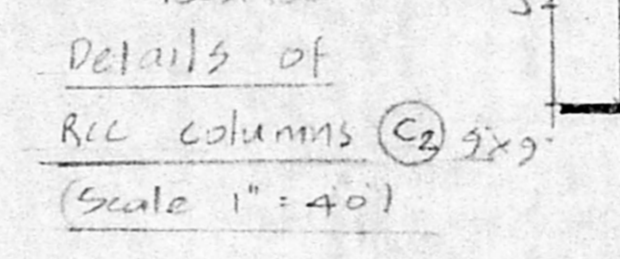 Details of
RCC columns C2 9"x9"
(Scale 1" = 40')